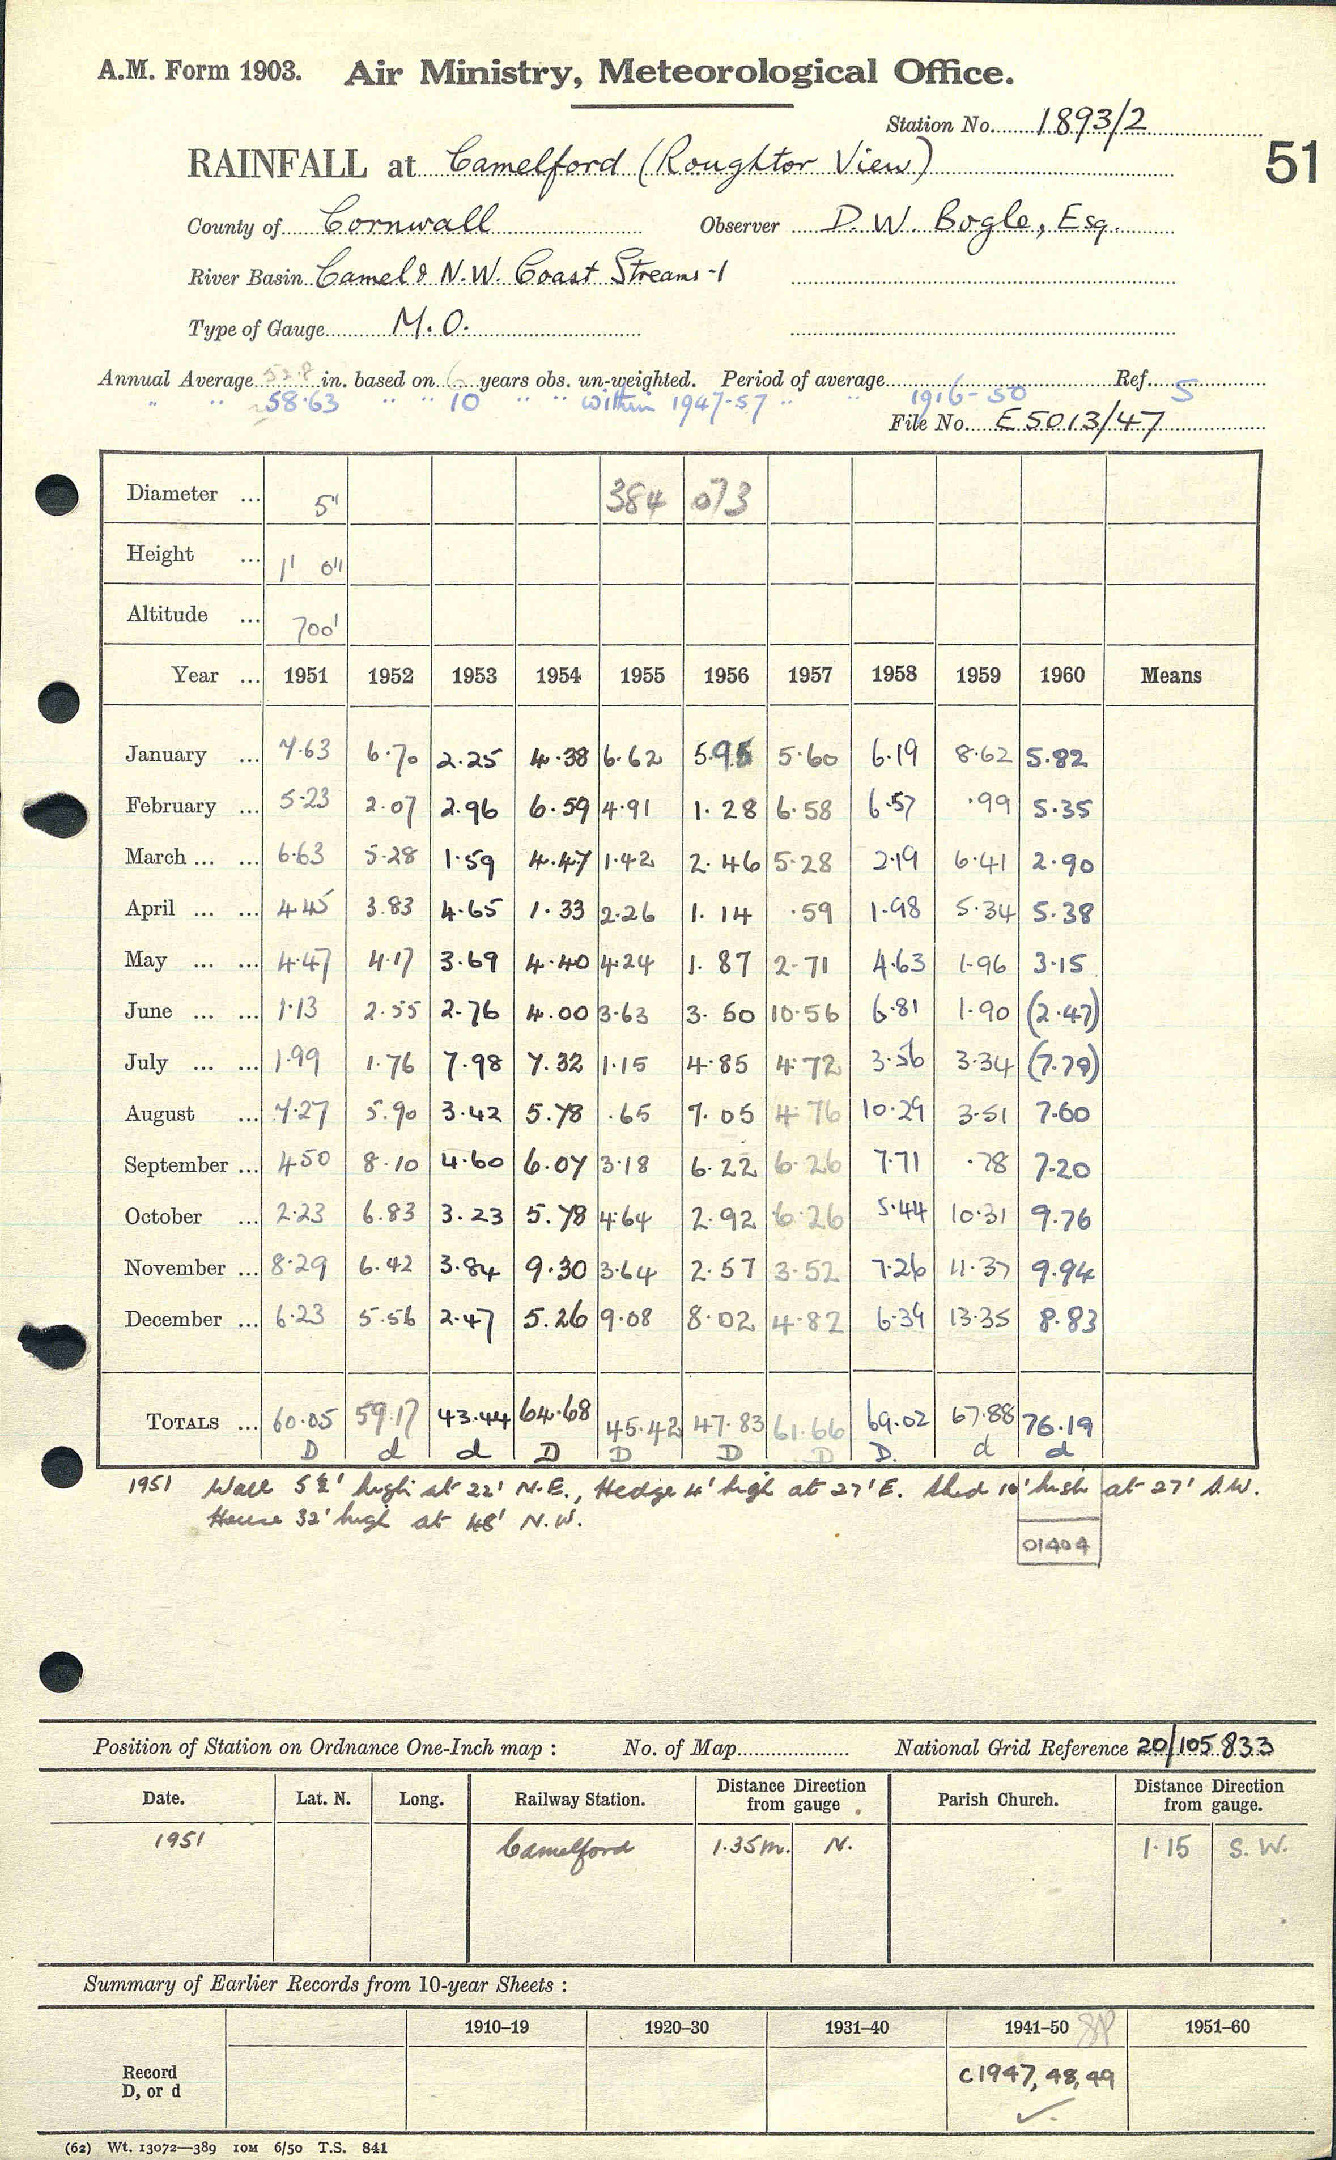 A.M. Form 1903. Air Ministry, Meteorological Office.
Station No. 1893/2
51
RAINFALL at Camelford (Roughtor View)
County of Cornwall Observer D. W. Bogle, Esq.
River Basin Camel & N.W. Coast Streams -1
Type of Gauge M.O.
Annual Average 52.8 in. based on 6 years obs. un-weighted. Period of average Ref. 5
" " 58.63 " " 10 " " within 1947-57 " " 1916-50
File No. E 5013/47
Diameter ... 5" 384 073
Height ... 1' 0"
Altitude ... 700'
Year ... 1951 1952 1953 1954 1955 1956 1957 1958 1959 1960 Means
January ... 7.63 6.70 2.25 4.38 6.62 5.95 5.60 6.19 8.62 5.82
February ... 5.23 2.07 2.96 6.59 4.91 1.28 6.58 6.57 .99 5.35
March ... ... 6.63 5.28 1.59 4.47 1.42 2.46 5.28 2.19 6.41 2.90
April ... ... 4.45 3.83 4.65 1.33 2.26 1.14 .59 1.98 5.34 5.38
May ... ... 4.47 4.17 3.69 4.40 4.24 1.87 2.71 4.63 1.96 3.15
June ... ... 1.13 2.55 2.76 4.00 3.63 3.50 10.56 6.81 1.90 (2.47)
July ... ... 1.99 1.76 7.98 7.32 1.15 4.85 4.72 3.56 3.34 (7.79)
August ... 7.27 5.90 3.42 5.78 .65 7.05 4.76 10.29 3.51 7.60
September ... 4.50 8.10 4.60 6.07 3.18 6.22 6.26 7.71 .78 7.20
October ... 2.23 6.83 3.23 5.78 4.64 2.92 6.26 5.44 10.31 9.76
November ... 8.29 6.42 3.84 9.30 3.64 2.57 3.52 7.26 11.37 9.94
December ... 6.23 5.56 2.47 5.26 9.08 8.02 4.82 6.39 13.35 8.83
TOTALS ... 60.05 59.17 43.44 64.68 45.42 47.83 61.66 69.02 67.88 76.19
D d d D D D D D. d d
1951 Wall 5½' high at 22' N.E., Hedge 4' high at 27' E. Shed 10' high at 27' S.W.
House 32' high at 48' N.W.
01404
Position of Station on Ordnance One-Inch map : No. of Map National Grid Reference 20/105 833
Date. Lat. N. Long. Railway Station. Distance Direction from gauge Parish Church. Distance Direction from gauge.
1951 Camelford 1.35m. N. 1.15 S.W.
Summary of Earlier Records from 10-year Sheets :
1910–19 1920–30 1931–40 1941–50 1951–60
Record
D, or d
C1947, 48, 49
(62) Wt. 13072—389 10M 6/50 T.S. 841